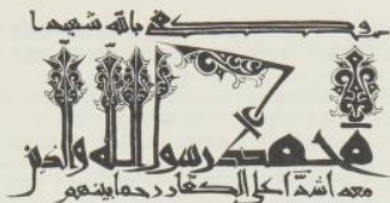 وكفى بالله شهيدا
محمد رسول الله والذين
معه اشداء على الكفار رحماء بينهم